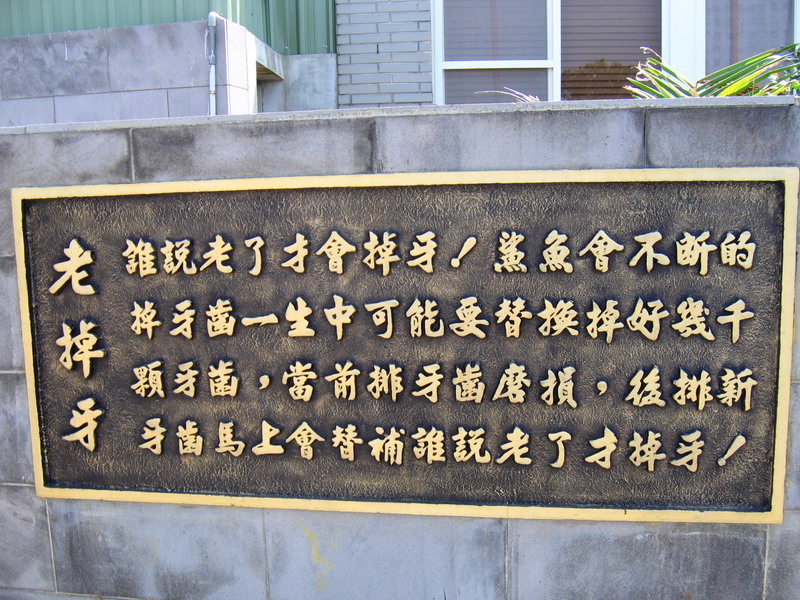 老掉牙
誰説老了才會掉牙！鯊魚會不断的
掉牙齒一生中可能要替換掉好幾千
顆牙齒，當前排牙齒磨損，後排新
牙齒馬上會替補誰説老了才掉牙！